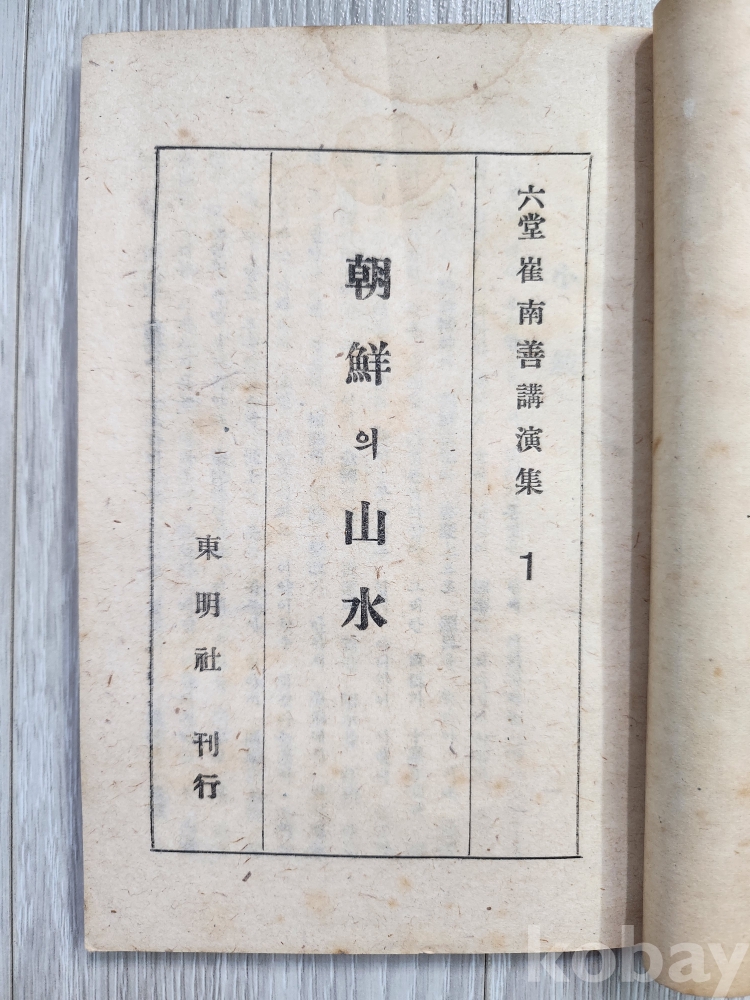 六堂崔南善講演集 1
朝鮮의山水
東明社 刊行
kobay